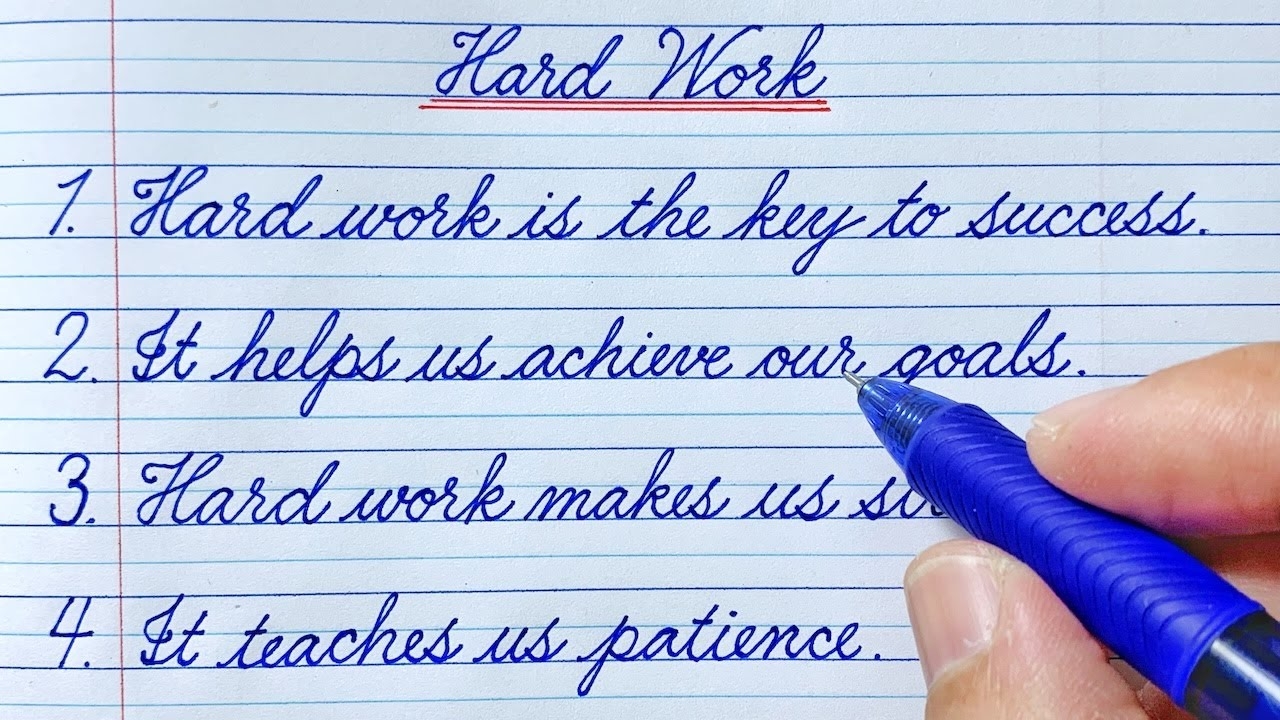 Hard Work
1. Hard work is the key to success.
2. It helps us achieve our goals.
3. Hard work makes us
4. It teaches us patience.